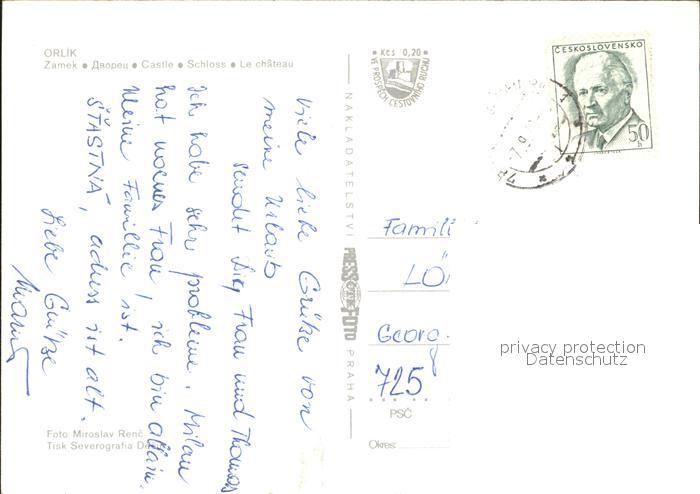 ORLÍK
Zámek ● Дворец ● Castle ● Schloss ● Le château
Viele liebe Grüße von
meine Urlaub
sendet Frau und Thomas
Ich habe sehr probleme. Milan
hat Frau! ich bin allein.
Meine Famillie ist.
ŠŤASTNÁ, adress ist alt.
Liebe Grüße
Foto Miroslav Renč
Tisk Severografia
Kčs 0,20
VE PROSPĚCH CESTOVNÍHO RUCHU
NAKLADATELSTVÍ
PRESSFOTO
PRAHA
ČESKOSLOVENSKO
50 h
Famili
LÖ
Georg-
725
PSČ
Okres:
privacy protection
Datenschutz